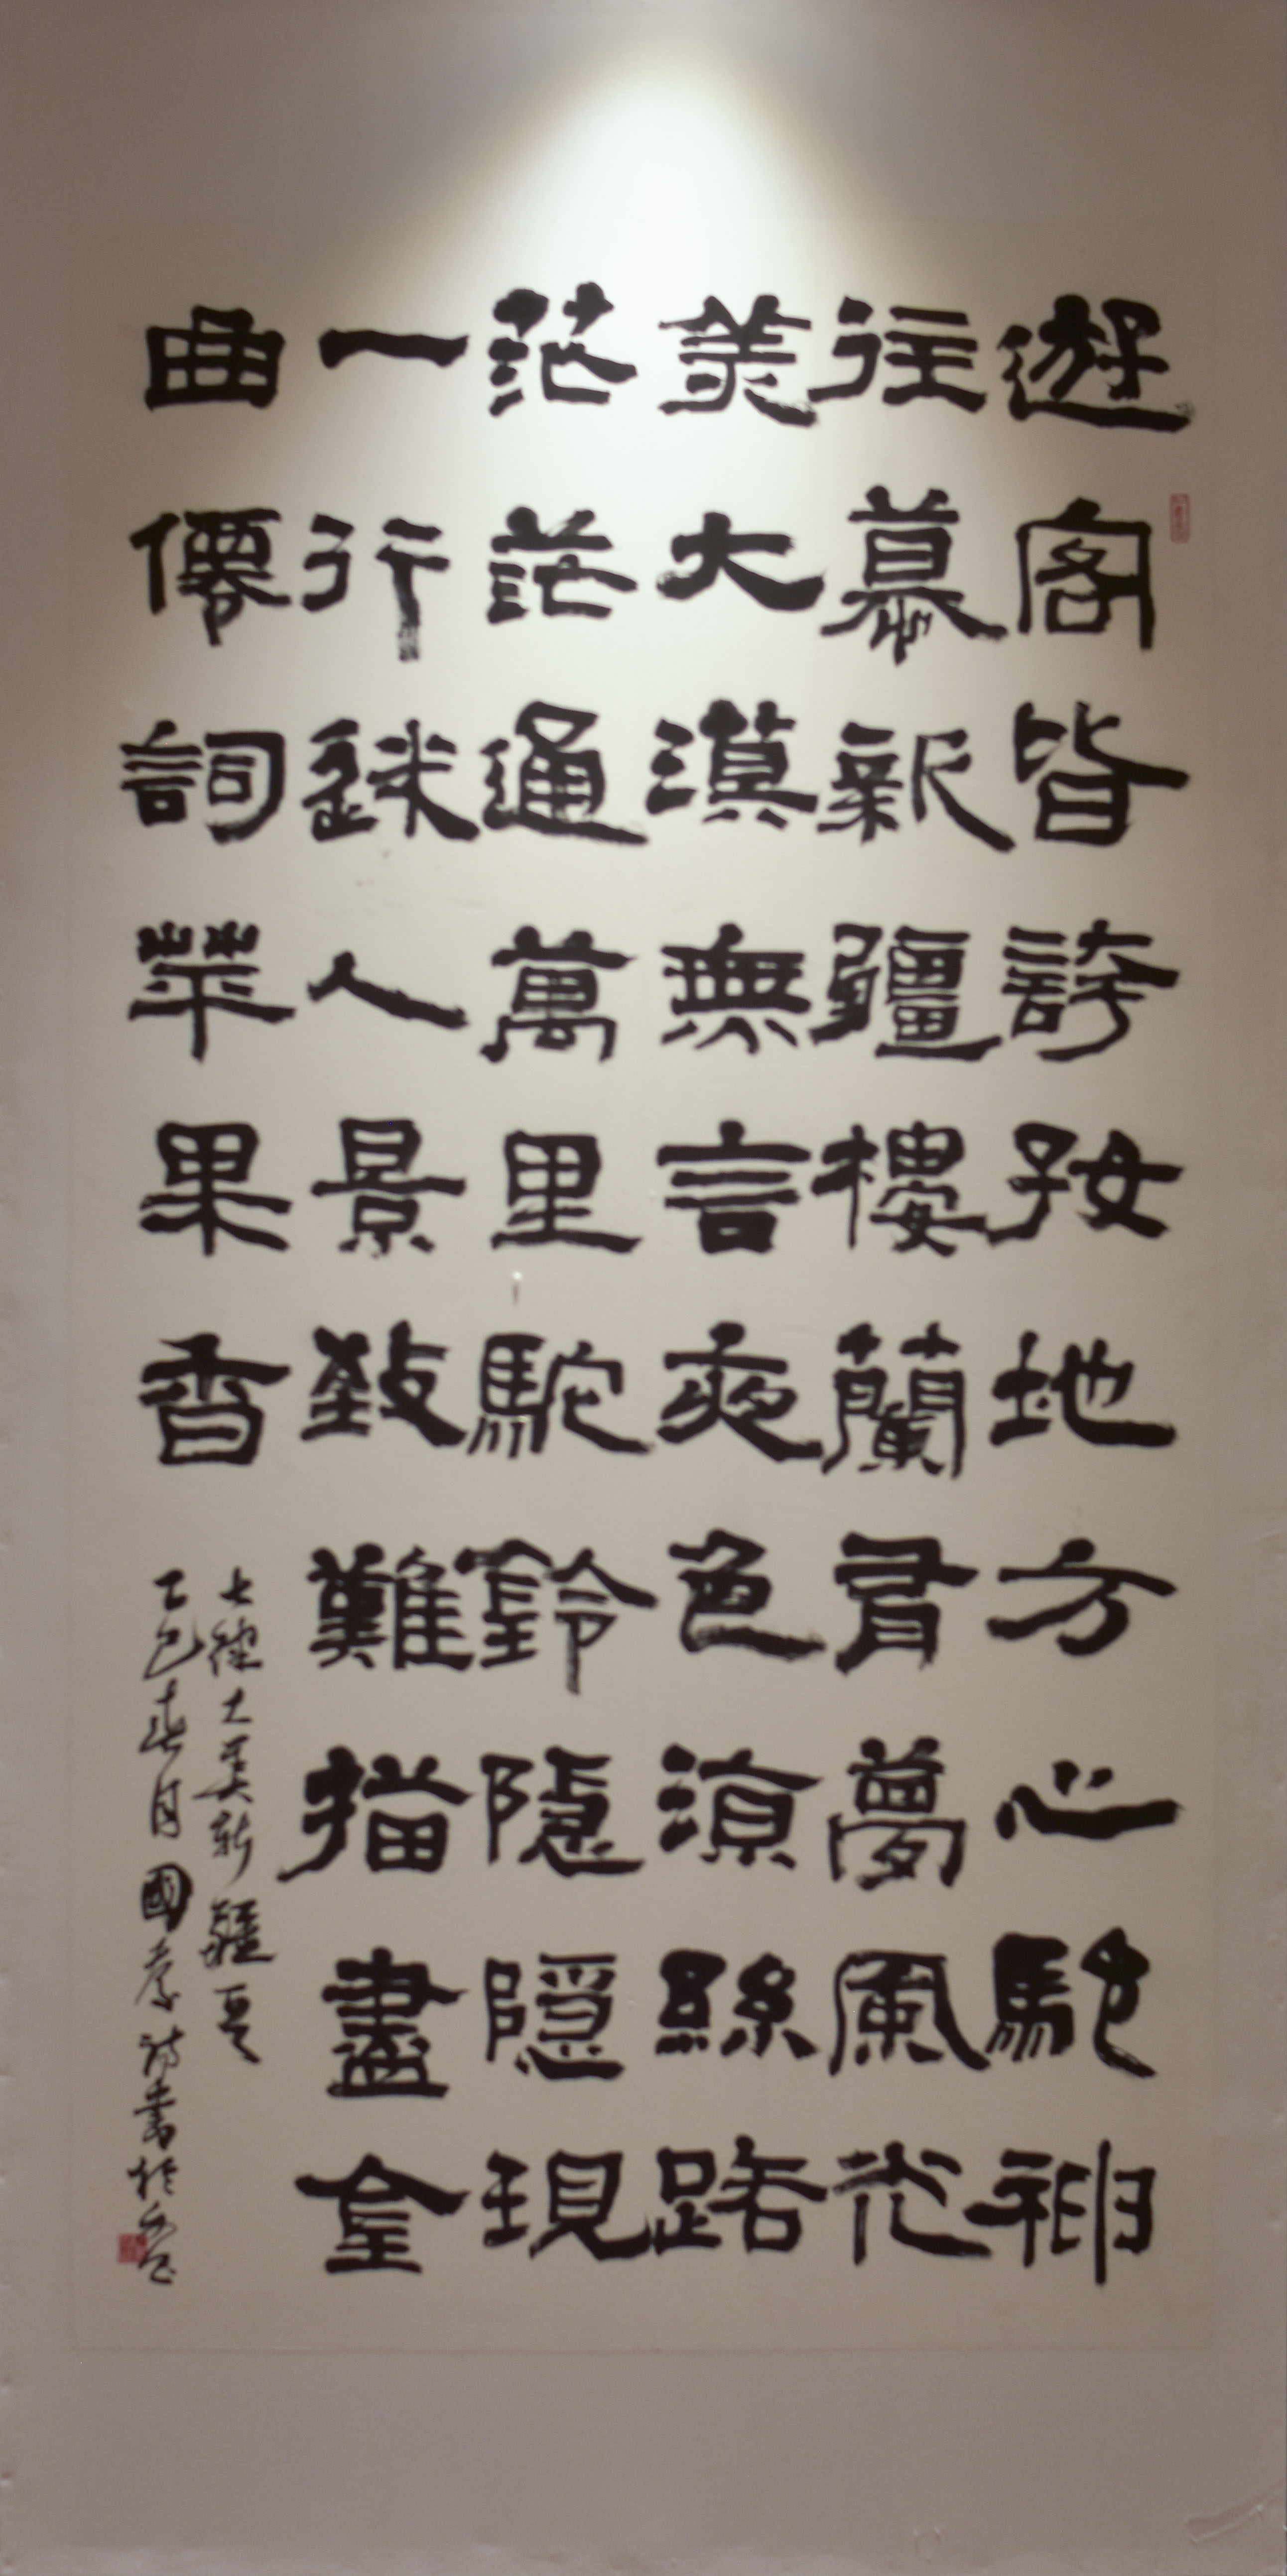 遊客皆誇好地方心馳神
往慕新疆樓蘭有夢風光
美大漠無言夜色涼絲路
茫茫通萬里駝鈴隱隱現
一行銖人景致難描盡皇
曲僊詞苹果香
七律大美新疆
乙巳春月國彥詩書於